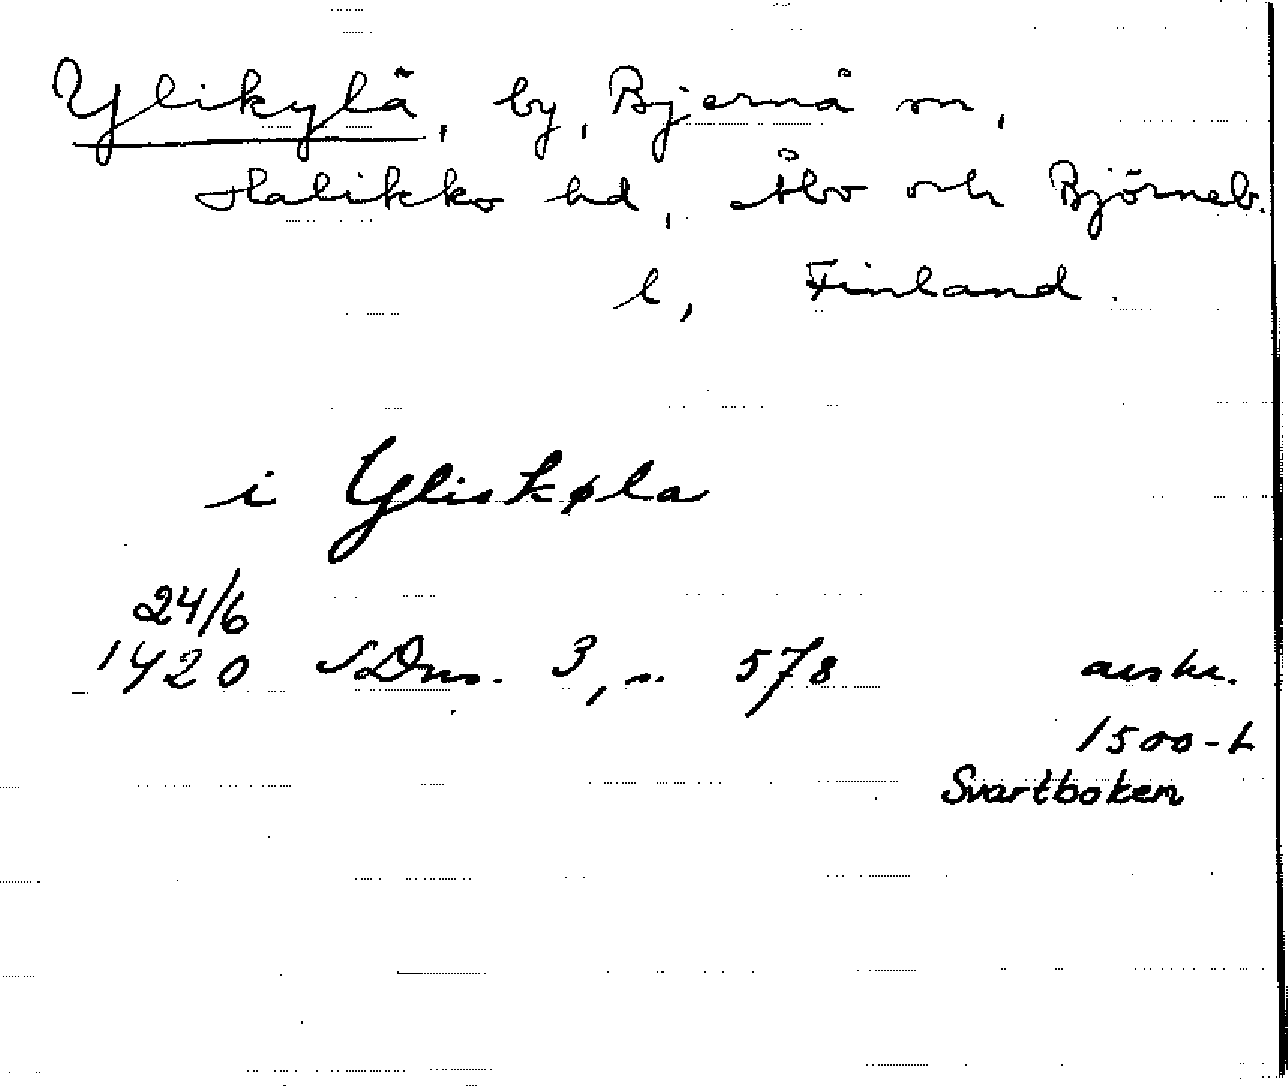 Ylikylä, by, Bjernå sn,
Halikko hd, Åbo och Björneb.
l, Finland.
i Yliskøla
24/6
1420 SDns. 3, s. 578 avskr.
1500-t
Svartboken